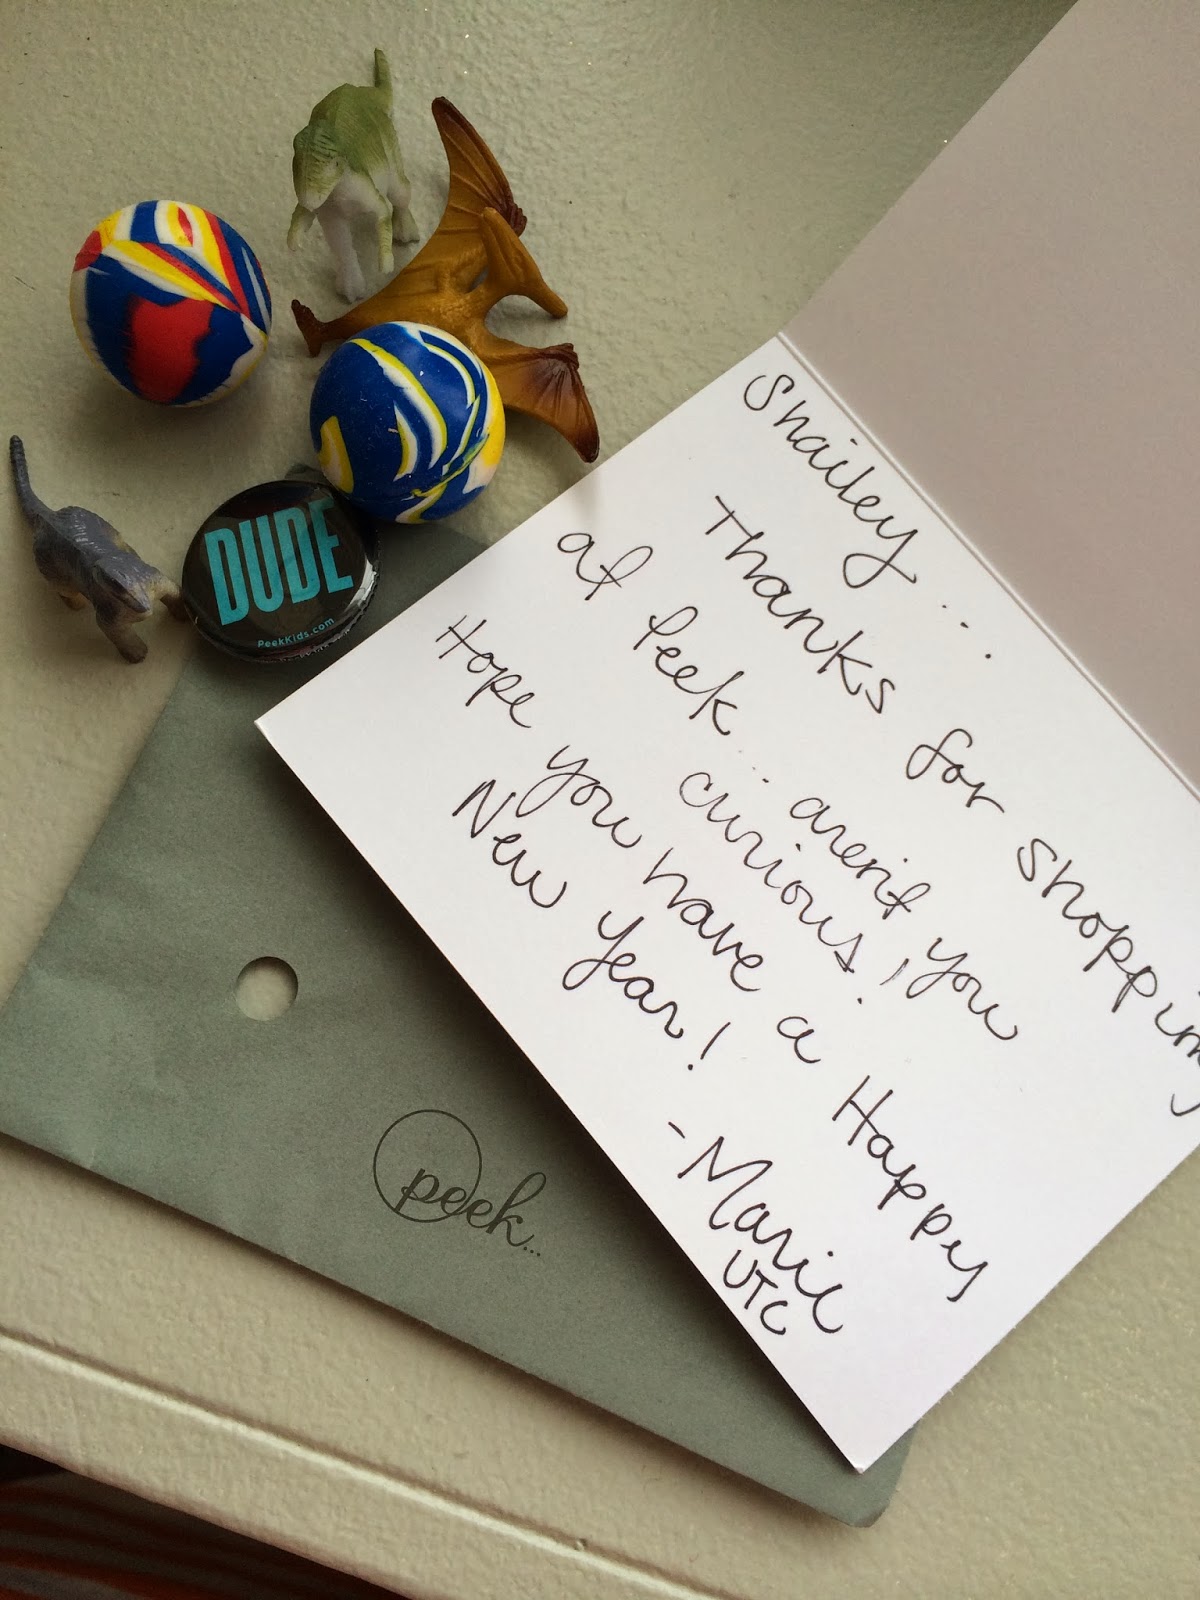 Shailey...
Thanks for Shopping
at Peek... aren't you
curious!
Hope you have a Happy
New Year!
-Marie
UTC
DUDE
PeekKids.com
peek...